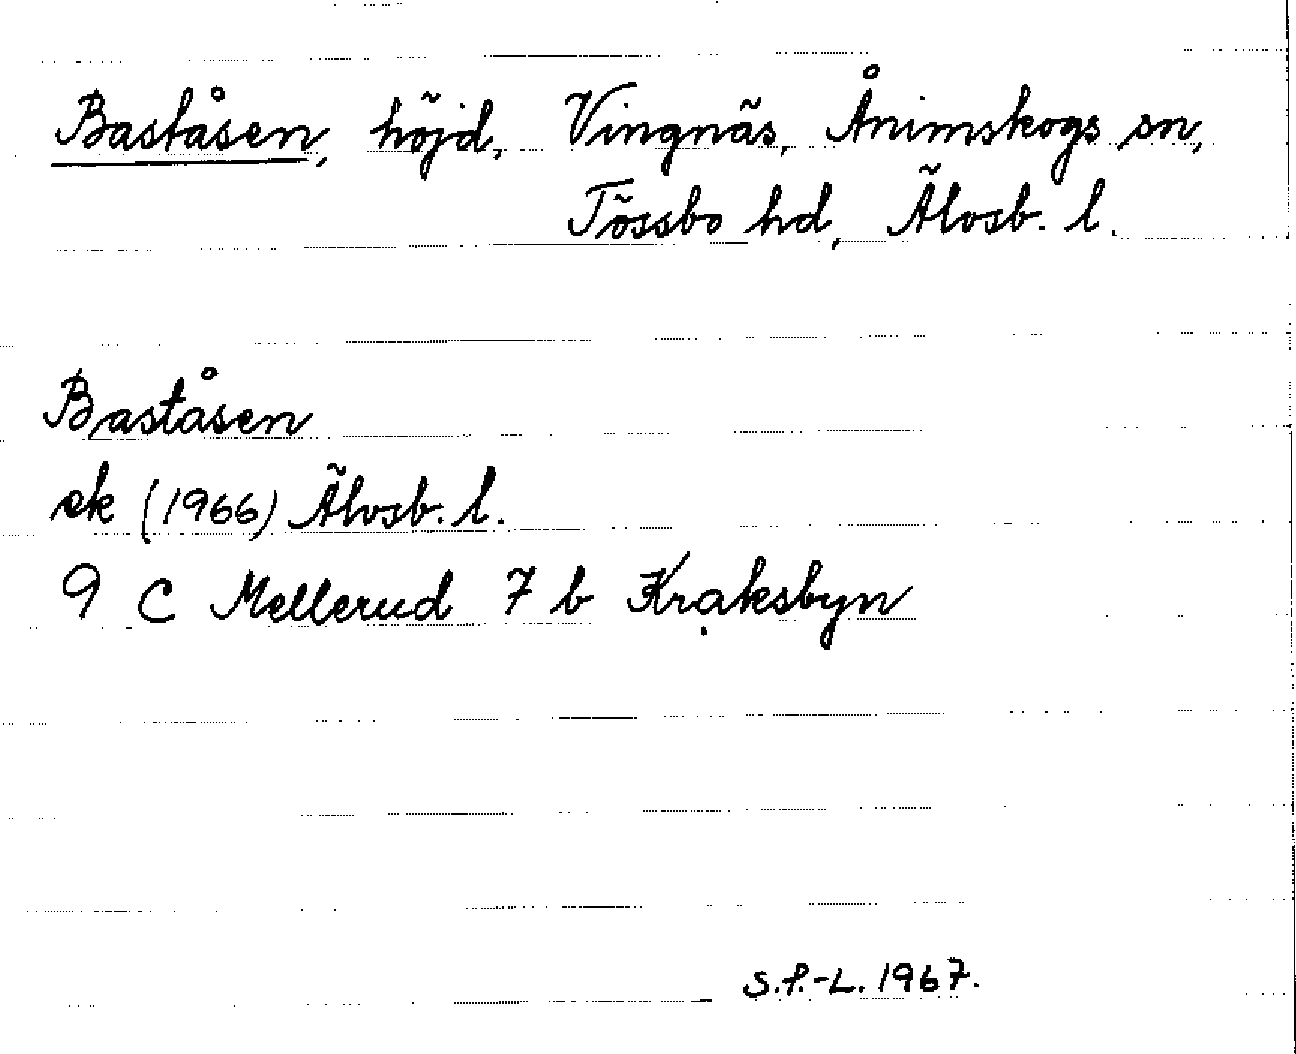 Baståsen, höjd, Vingnäs, Ånimskogs sn,
Tössbo hd, Älvsb. l.
Baståsen
ek (1966) Älvsb. l.
9 C Mellerud 7 b Kråksbyn
S.F.-L. 1967.